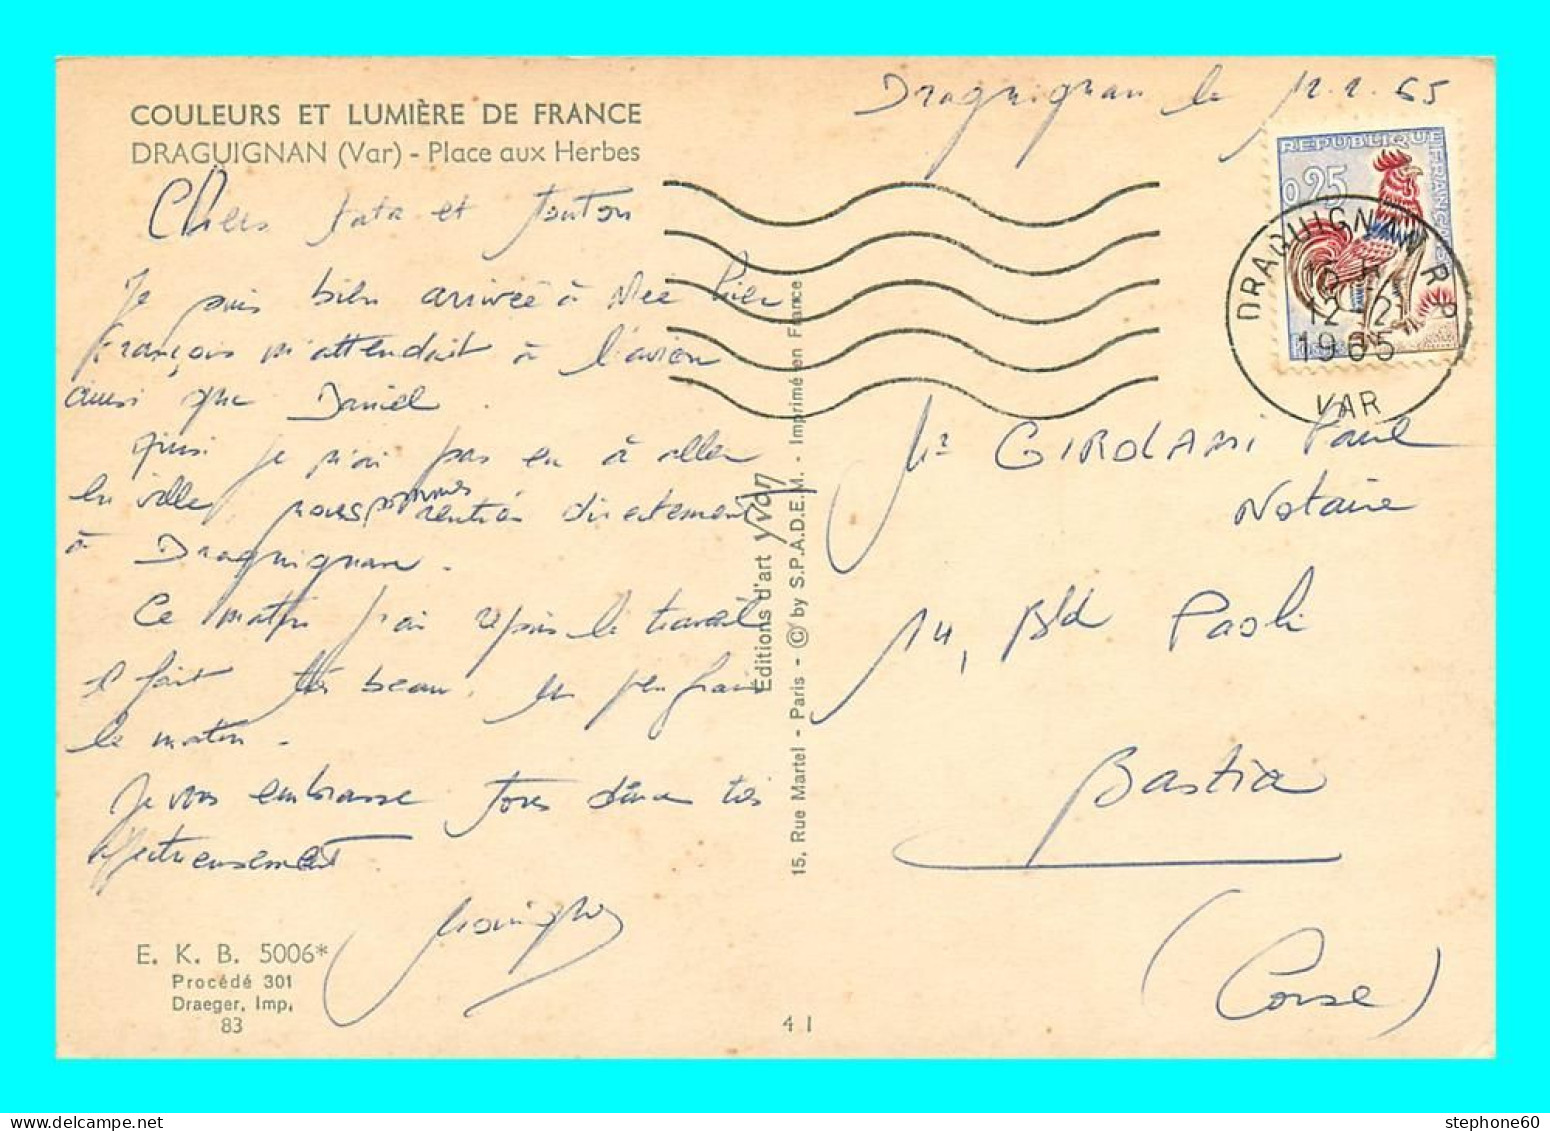 COULEURS ET LUMIÈRE DE FRANCE
DRAGUIGNAN (Var) - Place aux Herbes
Draguignan le 12.2.65
REPUBLIQUE FRANÇAISE
0,25
DRAGUIGNAN R.P
12-2
1965
VAR
Chers tata et tonton
Je suis bien arrivée à Nice hier
François m'attendait à l'avion
ainsi que Daniel
je n'ai pas eu à aller
en ville nous sommes rentrés directement
à Draguignan.
Ce matin j'ai repris le travail
il fait très beau. un peu frais
le matin.
Je vous embrasse tous deux très
affectueusement
Mr GIROLAMI Paul
Notaire
14, Bld Paoli
Bastia
(Corse)
Editions d'art Yvon
15, Rue Martel - Paris - © by S.P.A.D.E.M. - Imprimé en France
E. K. B. 5006*
Procédé 301
Draeger, Imp.
83
41
stephone60